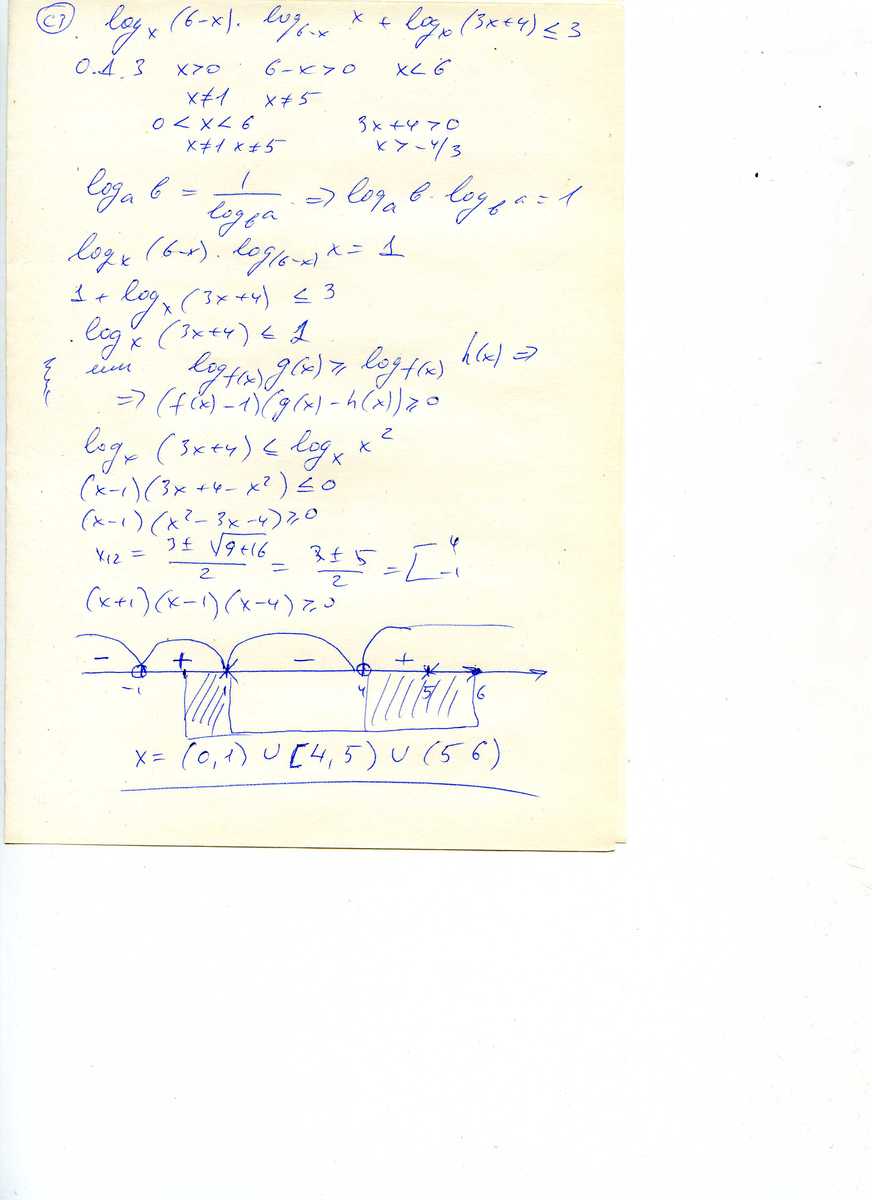 C3. log_x (6-x) · log_{6-x} x + log_x (3x+4) ≤ 3
О.Д.З x>0 6-x>0 x<6
x≠1 x≠5
0<x<6 3x+4>0
x≠1 x≠5 x>-4/3
log_a b = 1/log_b a => log_a b · log_b a = 1
log_x (6-x) · log_(6-x) x = 1
1 + log_x (3x+4) ≤ 3
log_x (3x+4) ≤ 2
или log_f(x) g(x) ≥ log_f(x) h(x) =>
=> (f(x)-1)(g(x)-h(x)) ≥ 0
log_x (3x+4) ≤ log_x x²
(x-1)(3x+4-x²) ≤ 0
(x-1)(x²-3x-4) ≥ 0
x_12 = (3±√(9+16))/2 = (3±5)/2 = [ 4 -1
(x+1)(x-1)(x-4) ≥ 0
- + - +
-1 1 4 5 6
x = (0,1) ∪ [4,5) ∪ (5 6)